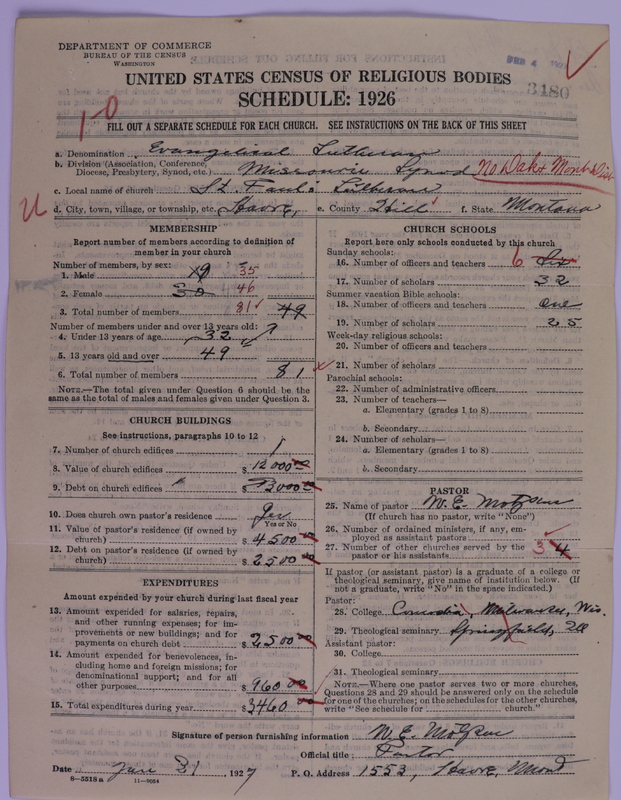 DEPARTMENT OF COMMERCE
BUREAU OF THE CENSUS
WASHINGTON
3180
UNITED STATES CENSUS OF RELIGIOUS BODIES
SCHEDULE: 1926
1-0
FILL OUT A SEPARATE SCHEDULE FOR EACH CHURCH. SEE INSTRUCTIONS ON THE BACK OF THIS SHEET
a. Denomination Evangelical Lutheran
b. Division (Association, Conference, Diocese, Presbytery, Synod, etc.) Missouri Synod No Dak & Mont Dist
c. Local name of church St. Paul's Lutheran
d. City, town, village, or township, etc. Havre, e. County Hill f. State Montana
MEMBERSHIP
Report number of members according to definition of
member in your church
Number of members, by sex:
1. Male 19 35
2. Female 30 46
3. Total number of members 81 49
Number of members under and over 13 years old:
4. Under 13 years of age 32
5. 13 years old and over 49
6. Total number of members 81
NOTE.—The total given under Question 6 should be
same as the total of males and females given under Question 3.
CHURCH BUILDINGS
See instructions, paragraphs 10 to 12
7. Number of church edifices 1
8. Value of church edifices $ 12000
9. Debt on church edifices $ 3000
10. Does church own pastor's residence Yes
Yes or No
11. Value of pastor's residence (if owned by
church) $ 4500
12. Debt on pastor's residence (if owned by
church) $ 2500
EXPENDITURES
Amount expended by your church during last fiscal year
13. Amount expended for salaries, repairs,
and other running expenses; for im-
provements or new buildings; and for
payments on church debt $ 2500
14. Amount expended for benevolences, in-
cluding home and foreign missions; for
denominational support; and for all
other purposes $ 960
15. Total expenditures during year $ 3460
CHURCH SCHOOLS
Report here only schools conducted by this church
Sunday schools:
16. Number of officers and teachers 6 Six
17. Number of scholars 32
Summer vacation Bible schools:
18. Number of officers and teachers one
19. Number of scholars 25
Week-day religious schools:
20. Number of officers and teachers
21. Number of scholars
Parochial schools:
22. Number of administrative officers
23. Number of teachers—
a. Elementary (grades 1 to 8)
b. Secondary
24. Number of scholars—
a. Elementary (grades 1 to 8)
b. Secondary
PASTOR
25. Name of pastor W. E.
(If church has no pastor, write "None")
26. Number of ordained ministers, if any, em-
ployed as assistant pastors
27. Number of other churches served by the
pastor or his assistants 3 4
If pastor (or assistant pastor) is a graduate of a college or
theological seminary, give name of institution below. (If
not a graduate, write "No" in the space indicated.)
Pastor:
28. College Concordia, Milwaukee, Wis.
29. Theological seminary Springfield, Ill
Assistant pastor:
30. College
31. Theological seminary
NOTE.—Where one pastor serves two or more churches,
Questions 28 and 29 should be answered only on the schedule
for one of the churches; on the schedules for the other churches,
write "See schedule for church."
Signature of person furnishing information W. E.
Official title Pastor
Date Jan 31 1927 P. O. Address 1553, Havre, Mont
8-5518 a 11-9054